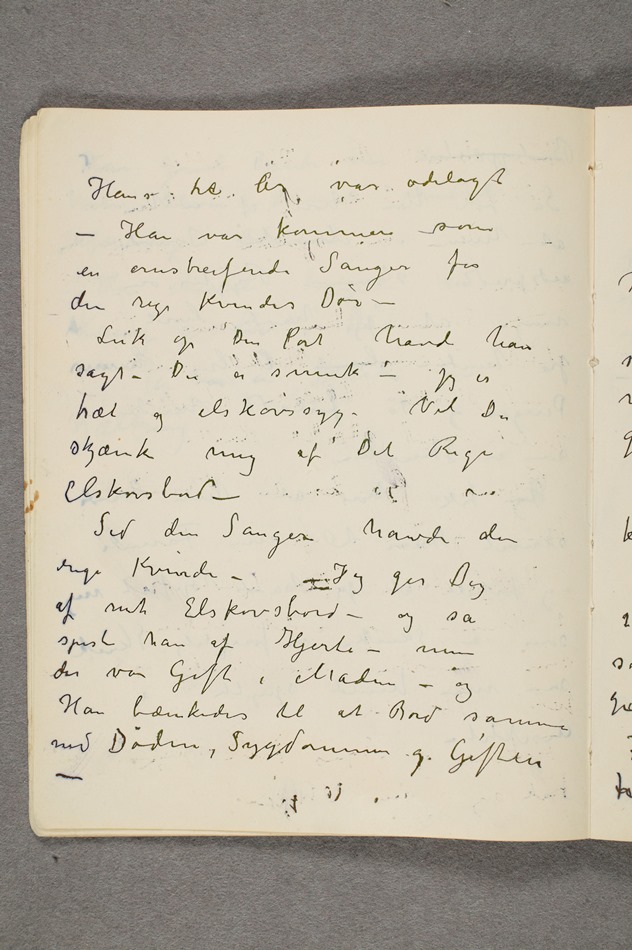 Hans  var ødelagt
– Han var kommen som
en omstreifende Sanger for
den rige Kvindes Dør –
Luk op Din Port havde han
sagt – Du er smuk – jeg er
træt og elskovssyg – Vil Du
skjænk mig af Dit Rige
Elskovsbord –
Sid den Sanger havde den
rige Kvinde – Jeg ger Dig
af mit Elskovsbord – og så
spiste han af Hjerte – men
der var Gift i Maden – og
Han bænkedes til et Bord samme
med Døden, Sygdommen og Giften
–